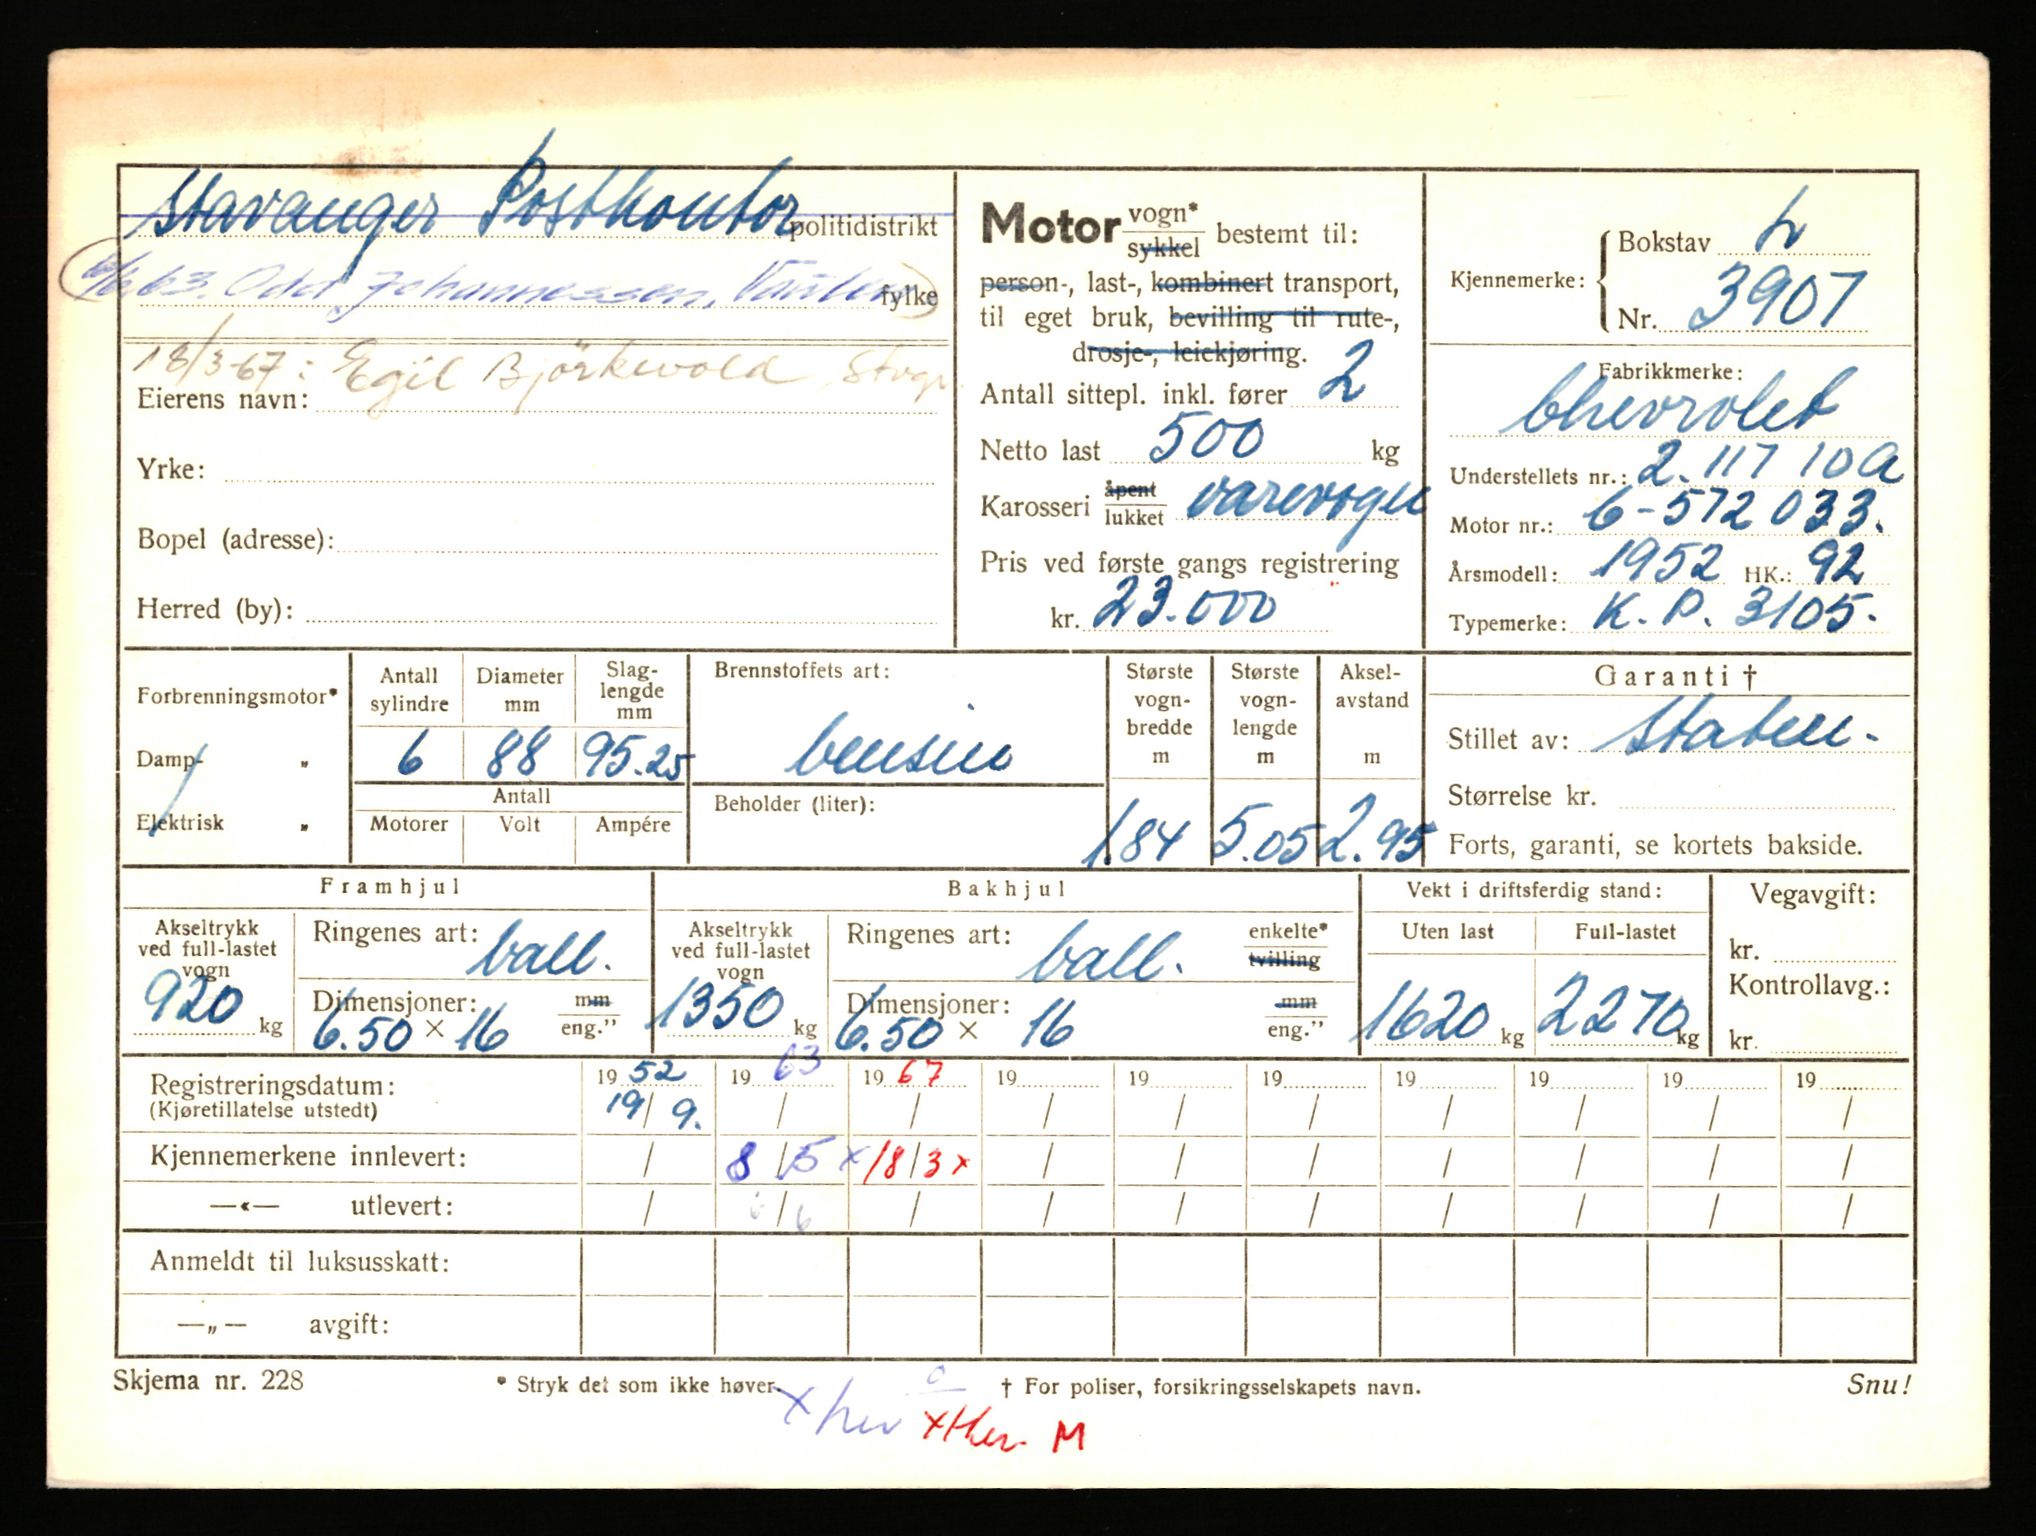 Stavanger Postkontor politidistrikt
6/6 63. Odd Johannessen, Vaulen fylke
18/3-67: Egil Björkevold, Stvgr.
Eierens navn:
Yrke:
Bopel (adresse):
Herred (by):
Motor vogn* sykkel bestemt til:
person-, last-, kombinert transport,
til eget bruk, bevilling til rute-,
drosje-, leiekjøring.
Antall sittepl. inkl. fører 2
Netto last 500 kg
Karosseri åpent lukket varevogn
Pris ved første gangs registrering
kr. 23.000
Kjennemerke: Bokstav L
Nr. 3907
Fabrikkmerke:
Chevrolet
Understellets nr.: 2.117 10 A
Motor nr.: 6-572 033.
Årsmodell: 1952 HK.: 92
Typemerke: K.P. 3105.
Forbrenningsmotor*
Damp- „
Elektrisk „
Antall sylindre 6
Diameter mm 88
Slag-lengde mm 95.25
Antall
Motorer Volt Ampére
Brennstoffets art:
bensin
Beholder (liter):
Største vogn-bredde m 1.84
Største vogn-lengde m 5.05
Aksel-avstand m 2.95
Garanti †
Stillet av: Staten.
Størrelse kr.
Forts, garanti, se kortets bakside.
Framhjul
Akseltrykk ved full-lastet vogn 920 kg
Ringenes art: ball.
Dimensjoner: 6.50 × 16 mm eng."
Bakhjul
Akseltrykk ved full-lastet vogn 1350 kg
Ringenes art: ball. enkelte* tvilling
Dimensjoner: 6.50 × 16 mm eng."
Vekt i driftsferdig stand:
Uten last 1620 kg
Full-lastet 2270 kg
Vegavgift:
kr.
Kontrollavg.:
kr.
Registreringsdatum: 19 52 19 63 19 67 19 19 19 19 19 19 19
(Kjøretillatelse utstedt) 19/9. / / / / / / / / /
Kjennemerkene innlevert: / 8/5 x 18/3 x / / / / / / /
—«— utlevert: / 6/6 / / / / / / / /
Anmeldt til luksusskatt:
—„— avgift:
Skjema nr. 228 * Stryk det som ikke høver. † For poliser, forsikringsselskapets navn. Snu!
x her x her M